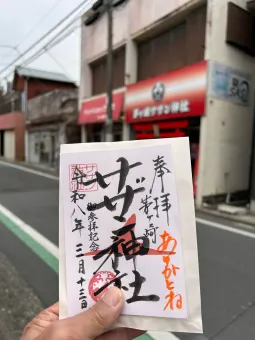 奉拝
茅ヶ崎
サザン神社
参拝記念
令和八年 三月十三日
ありがとね
茅ヶ崎サザン神社